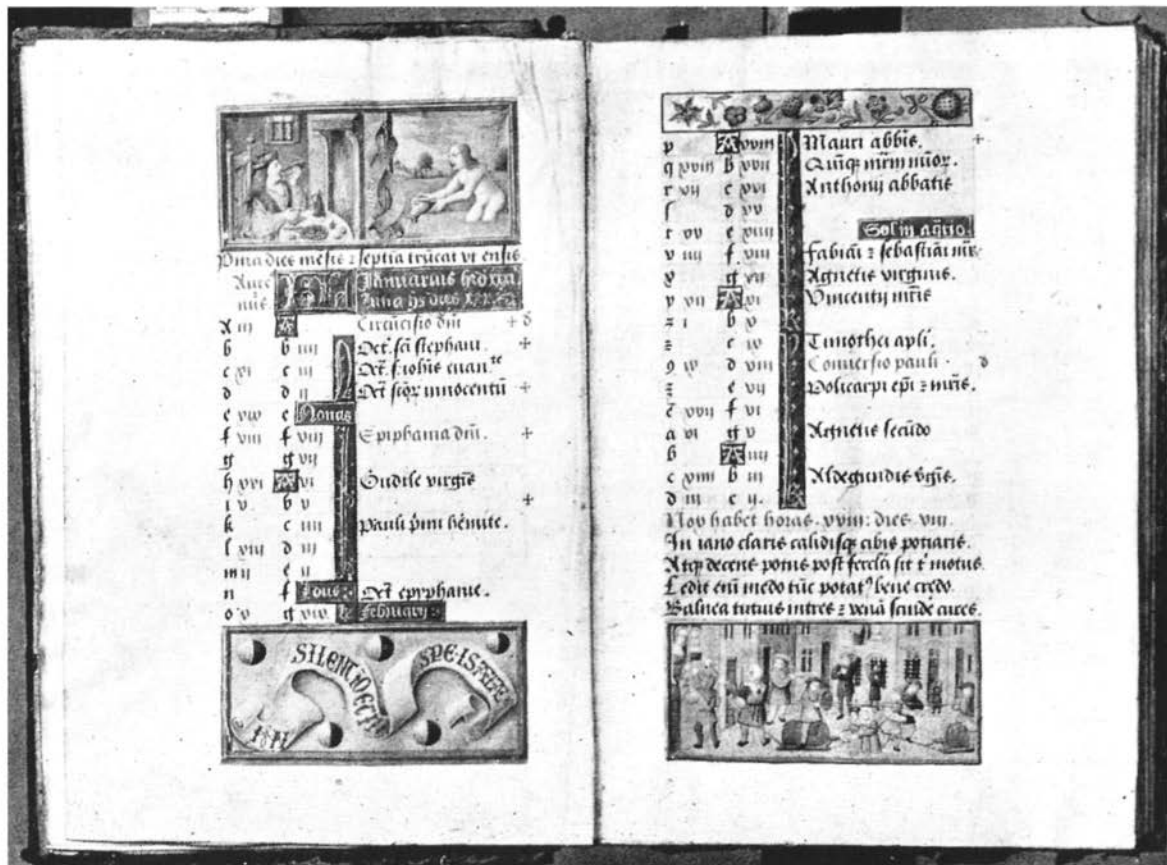 Prima dies mēsis ꝛ septīa trūcat vt ensis.
Aure nūs. Januarius
A iij A Circūcisio dn̄i + d
b b iiij Oct. sc̄i stephani. +
c xi c iij Oct. s. iohīs euan.te
d d ij Oct. sc̄oꝝ innocentū +
e xix e Nonas
f viij f viij Epiphania dn̄i. +
g g vij
h xvi A vi Gudile virgīs
i v. b v +
k c iiij Pauli p̄mi hēmite.
l xiij d iij
m ij e ij
n f Idus Oct. epyphanie.
o x g xix februarij
SILENTIO ET SPE
p A xviij Mauri abb̄is. +
q xviij b xvij Quīqꝫ mr̄m
r vij c xvi Anthonij abbatis
s d xv
Sol in aq̄rio.
t xv e xiiij
v iiij f xiij Fabiāi ꝛ sebastiāi mr̄.
x g xij Agnetis virginis.
y xij A xi Vincentij mr̄is
z i b x
ꝛ c ix Timothei apl̄i
9 ix d viij Conuersio pauli d
e vij Policarpi ep̄i ꝛ mr̄is.
xvij f vi
a vi g v Agnetis secūdo
b A iiij
c xiiij b iij Aldegundis v̄gīs.
d iij c ij.
Nox habet horas. xvi: dies. viij
In iano claris calidisqꝫ cibis potiaris.
Atqꝫ decens potus post fercl̄a sit t motus.
Ledit eni medo tūc potatꝰ bene credo.
Balnea tutius intres ꝛ venā scinde cures.